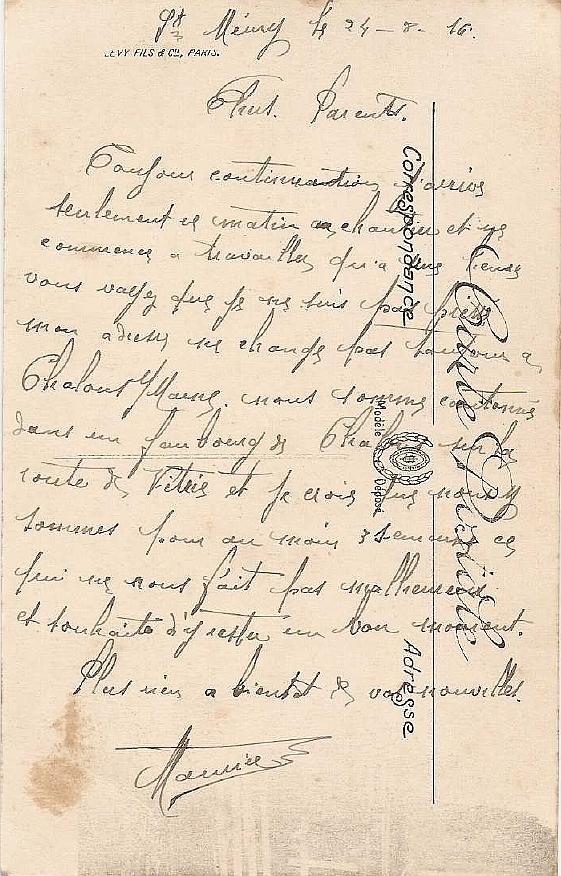 St Mémy le 24 - 8 - 16.
LEVY FILS & Cie, PARIS.
Chers Parents.
Toujour continuation
seulement ce matin au chantier et ne
commence a travailler qu'a une heure
vous voyez que je ne suis pas pressé
mon adresse ne change pas toujours a
Chalons s/Marne. nous somme cantonnés
dans un faubourg de Chalons sur la
route de Vitrie et je crois que nous y
sommes pour au moin 3 semaines ce
qui ne nous fait pas malheureux
et souhaite d'y rester un bon moment.
Plus rien a bientot de vos nouvelles.
Maurice
Correspondance
Modèle Déposé
Adresse
Carte Postale